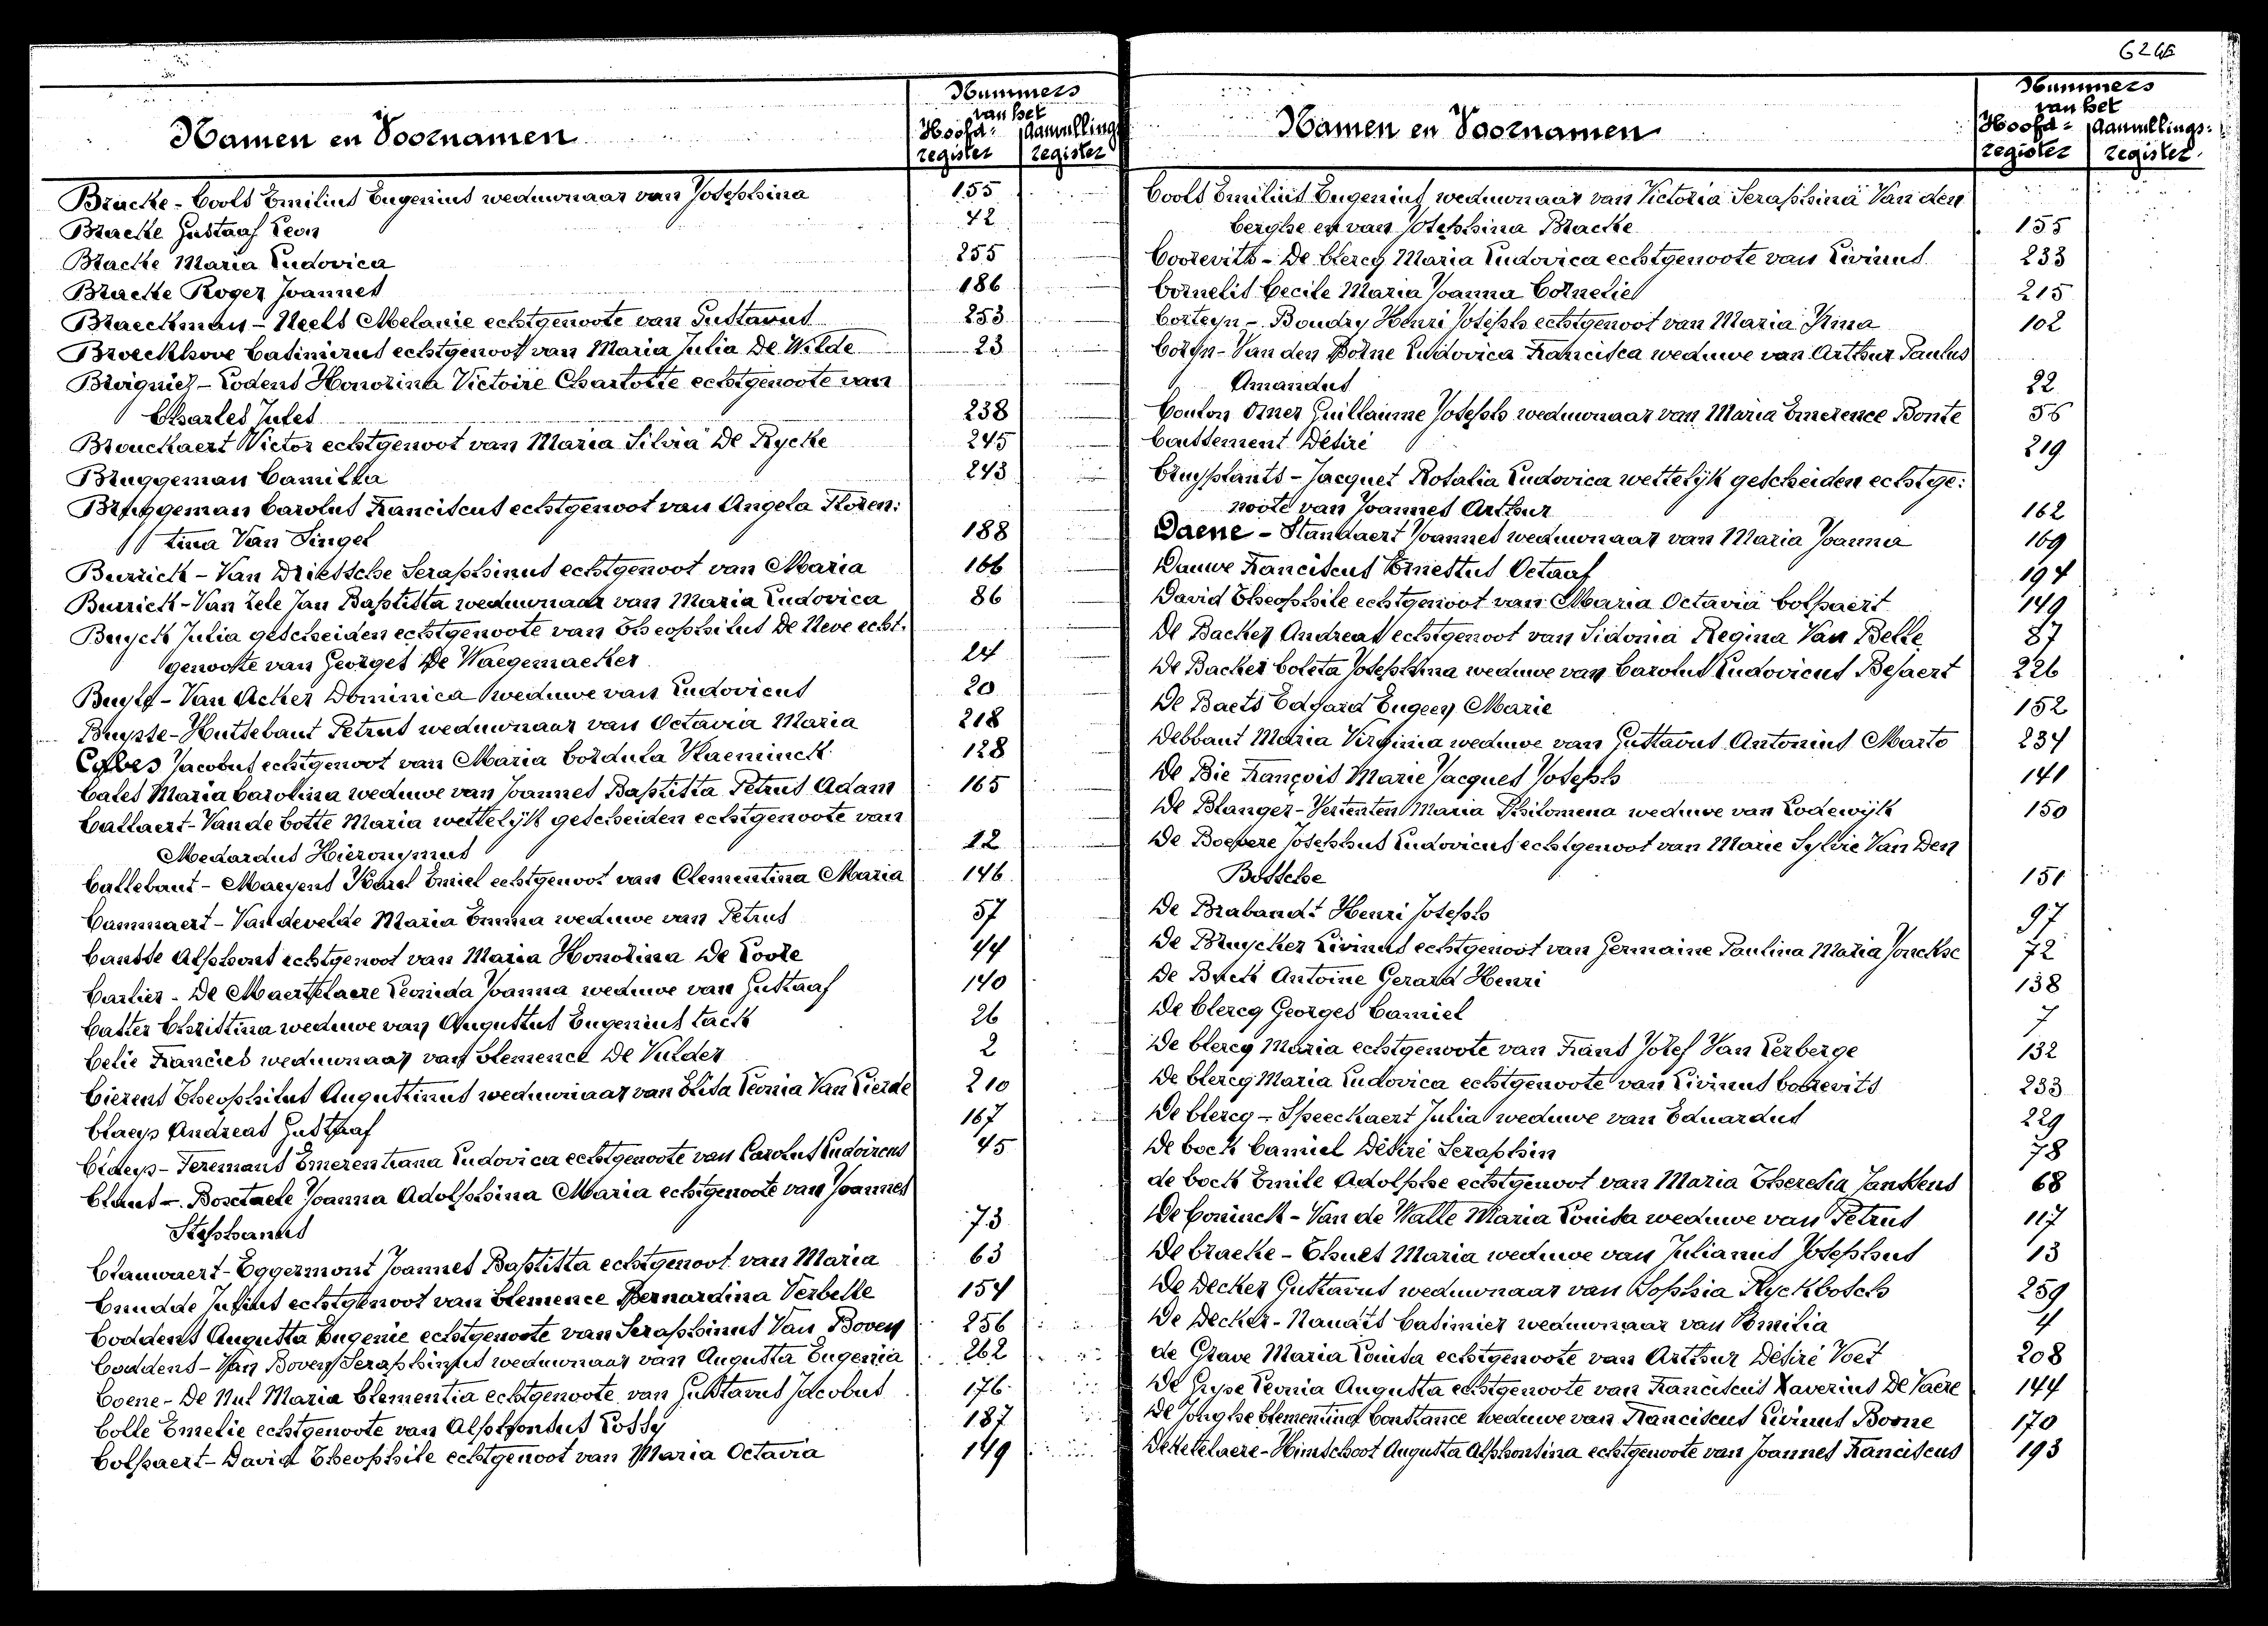 624
Nummers
van het
Namen en Voornamen
Hoofd= Aanvullings
register register
Bracke - Cools Emilius Eugenius weduwnaar van Josephina 155
Bracke Gustaaf Leon 42
Bracke Maria Ludovica 255
Bracke Roger Joannes 186
Braeckman - Neels Melanie echtgenoote van Gustavus 253
Broeckhove Casimirus echtgenoot van Maria Julia De Wilde 23
Broigniez - Lodens Honorina Victoire Charlotte echtgenoote van
Charles Jules 238
Brouckaert Victor echtgenoot van Maria Silvia De Rycke 245
Bruggeman Camilla 243
Bruggeman Carolus Franciscus echtgenoot van Angela Floren:
tina Van Singel 188
Burrick - Van Driessche Seraphinus echtgenoot van Maria 166
Burrick - Van Zele Jan Baptista weduwnaar van Maria Ludovica 86
Buyck Julia gescheiden echtgenoote van Theophilus De Neve echt.
genoote van Georges De Waegemaeker 24
Buyle - Van Acker Dominica weduwe van Ludovicus 20
Buysse - Huttebaut Petrus weduwnaar van Octavia Maria 218
Jacobus echtgenoot van Maria Cordula Vlaeminck 128
Cales Maria Carolina weduwe van Joannes Baptista Petrus Adam 165
Callaert - Van de Cotte Maria wettelijk gescheiden echtgenoote van
Medardus Hieronymus 12
Callebaut - Maeyens Karel Emiel echtgenoot van Clementina Maria 146
Cammaert - Vandevelde Maria Emma weduwe van Petrus 57
Cansse Alphons echtgenoot van Maria Honorina De Loore 44
Carlier - De Maertelaere Leonida Joanna weduwe van Gustaaf 140
Casier Christina weduwe van Augustus Eugenius tack 26
Celie Francies weduwnaar van Clemence De Vulder 2
Cierens Theophilus Augustinus weduwnaar van Elisa Leonia Van Lierde 210
Claeys Andreas Gustaaf 167
Claeys - Feremans Emerentiana Ludovica echtgenoote van Carolus Ludovicus 45
Claus - Bosctaele Joanna Adolphina Maria echtgenoote van Joannes
Stephanus 73
Clauwaert - Eggermont Joannes Baptista echtgenoot van Maria 63
Cnudde Julius echtgenoot van Clemence Bernardina Verbelle 154
Coddens Augusta Eugenie echtgenoote van Seraphinus Van Boven 256
Coddens - Van Boven Seraphinus weduwnaar van Augusta Eugenia 262
Coene - De Nul Maria Clementia echtgenoote van Gustavus Jacobus 176
Colle Emelie echtgenoote van Alphonsus Lossy 187
Colpaert - David Theophile echtgenoot van Maria Octavia 149
Nummers
van het
Namen en Voornamen
Hoofd= Aanvullings=
register register
Cools Emilius Eugenius weduwnaar van Victoria Seraphina Van den
berghe en van Josephina Bracke 155
Coorevits - De Clercq Maria Ludovica echtgenoote van Livinus 233
Cornelis Cecile Maria Joanna Cornelie 215
Corteyn - Boudry Henri Joseph echtgenoot van Maria Irma 102
Coryn - Van den Borne Ludovica Francisca weduwe van Arthur Paulus
Amandus 22
Coulon Omer Guillaume Joseph weduwnaar van Maria Emerence Bonte 56
Coussement Désiré 219
Cruyplants - Jacquet Rosalia Ludovica wettelijk gescheiden echtge:
noote van Joannes Arthur 162
Daene - Standaert Joannes weduwnaar van Maria Joanna 169
Dauwe Franciscus Ernestus Octaaf 194
David Theophile echtgenoot van Maria Octavia Colpaert 149
De Backer Andreas echtgenoot van Sidonia Regina Van Belle 87
De Backer Coleta Josephina weduwe van Carolus Ludovicus Bejaert 226
De Baets Edgard Eugeen Marie 152
Debbaut Maria Virginia weduwe van Gustavus Antonius Marto 234
De Bie François Marie Jacques Joseph 141
De Blanger - Vertenten Maria Philomena weduwe van Lodewijk 150
De Boevere Josephus Ludovicus echtgenoot van Marie Sylvie Van Den
Bossche 151
De Brabandt Henri Joseph 97
De Bruycker Livinus echtgenoot van Germaine Paulina Maria Jonckhe 72
De Buck Antoine Gerard Henri 138
De Clercq Georges Camiel 7
De Clercq Maria echtgenoote van Frans Jozef Van Lerberge 132
De Clercq Maria Ludovica echtgenoote van Livinus Coorevits 233
De Clercq - Speeckaert Julia weduwe van Eduardus 229
De Cock Camiel Désiré Seraphin 78
de Cock Emile Adolphe echtgenoot van Maria Theresia Janssens 68
De Coninck - Van de Walle Maria Louisa weduwe van Petrus 117
De Cracke - Ehues Maria weduwe van Julianus Josephus 13
De Decker Gustavus weduwnaar van Sophia Ryckbosch 259
De Decker - Naudts Casimier weduwnaar van Emilia 4
de Grave Maria Louisa echtgenoote van Arthur Désiré Voet 208
De Gryse Leonia Augusta echtgenoote van Franciscus Xaverius De Vaere 144
De Jonghe Clementina Constance weduwe van Franciscus Livinus Boone 170
Deketelaere - Himschoot Augusta Alphonsina echtgenoote van Joannes Franciscus 193